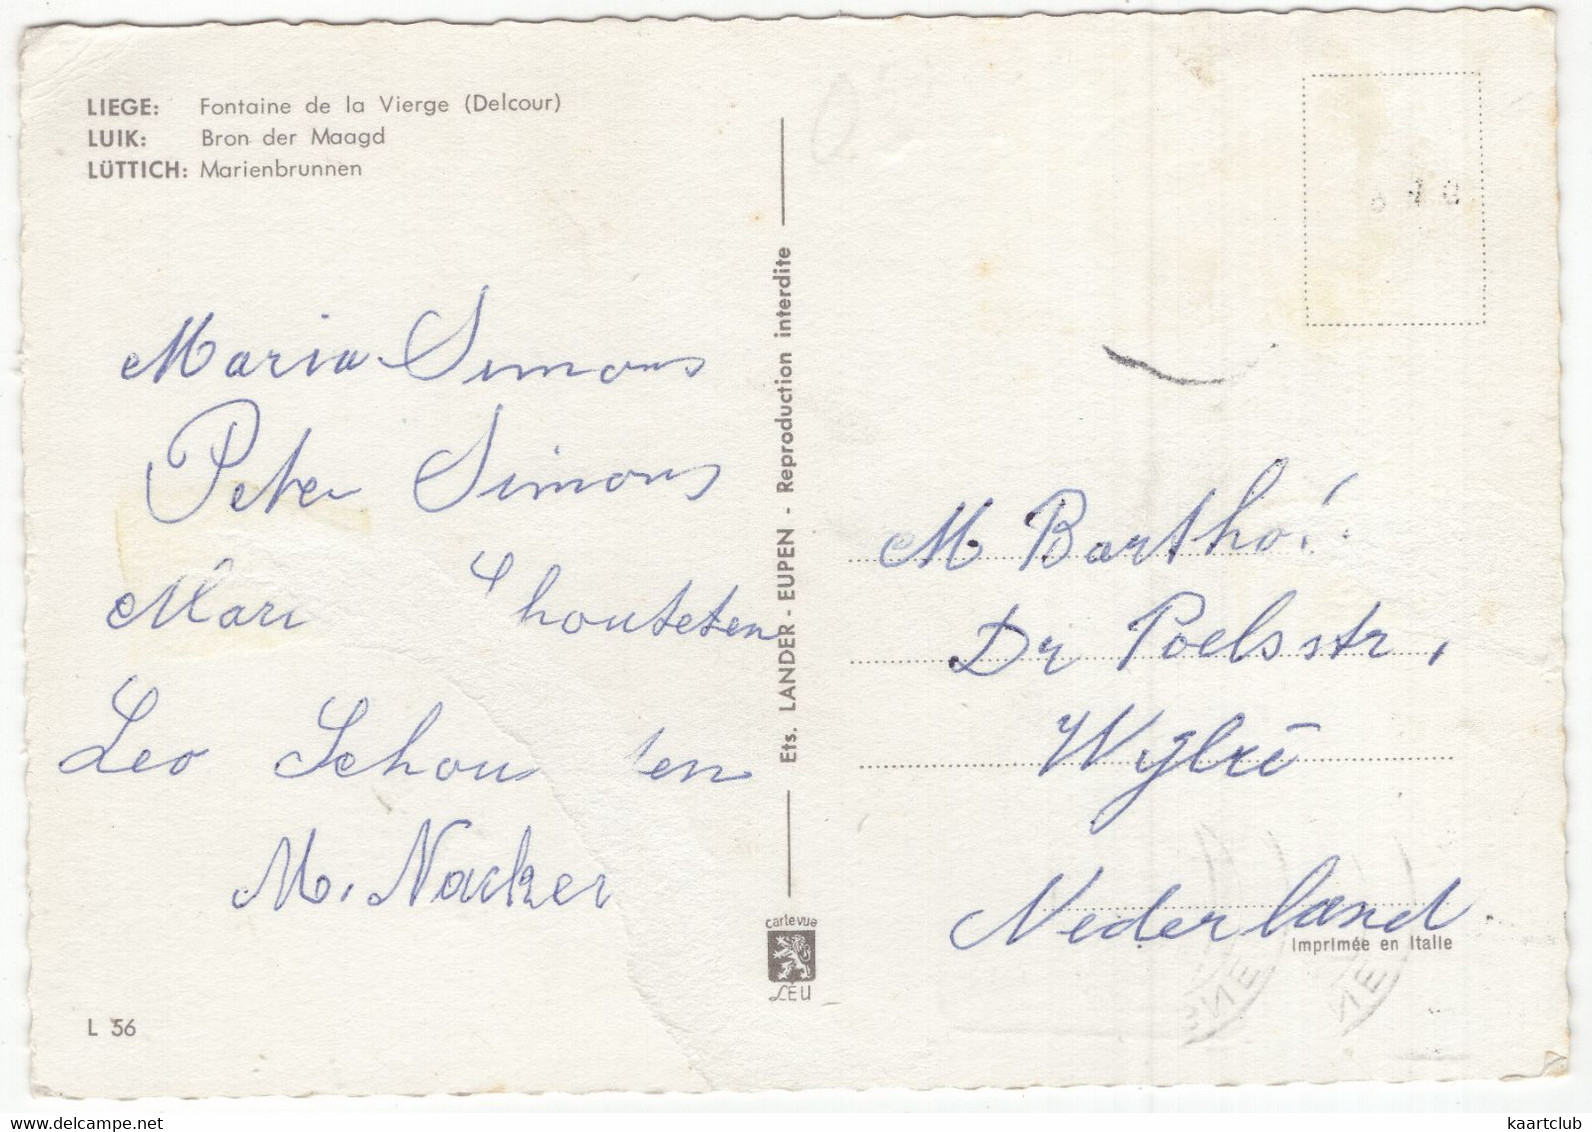 LIEGE: Fontaine de la Vierge (Delcour)
LUIK: Bron der Maagd
LÜTTICH: Marienbrunnen
Maria Simons
Peter Simons
houteten
Leo Schou ten
M. Nacker
L 56
Ets. LANDER - EUPEN - Reproduction interdite
carte vue
LÉU
M Bartho
Dr Poelsstr,
Wylré
Nederland
Imprimée en Italie
www.delcampe.net
kaartclub